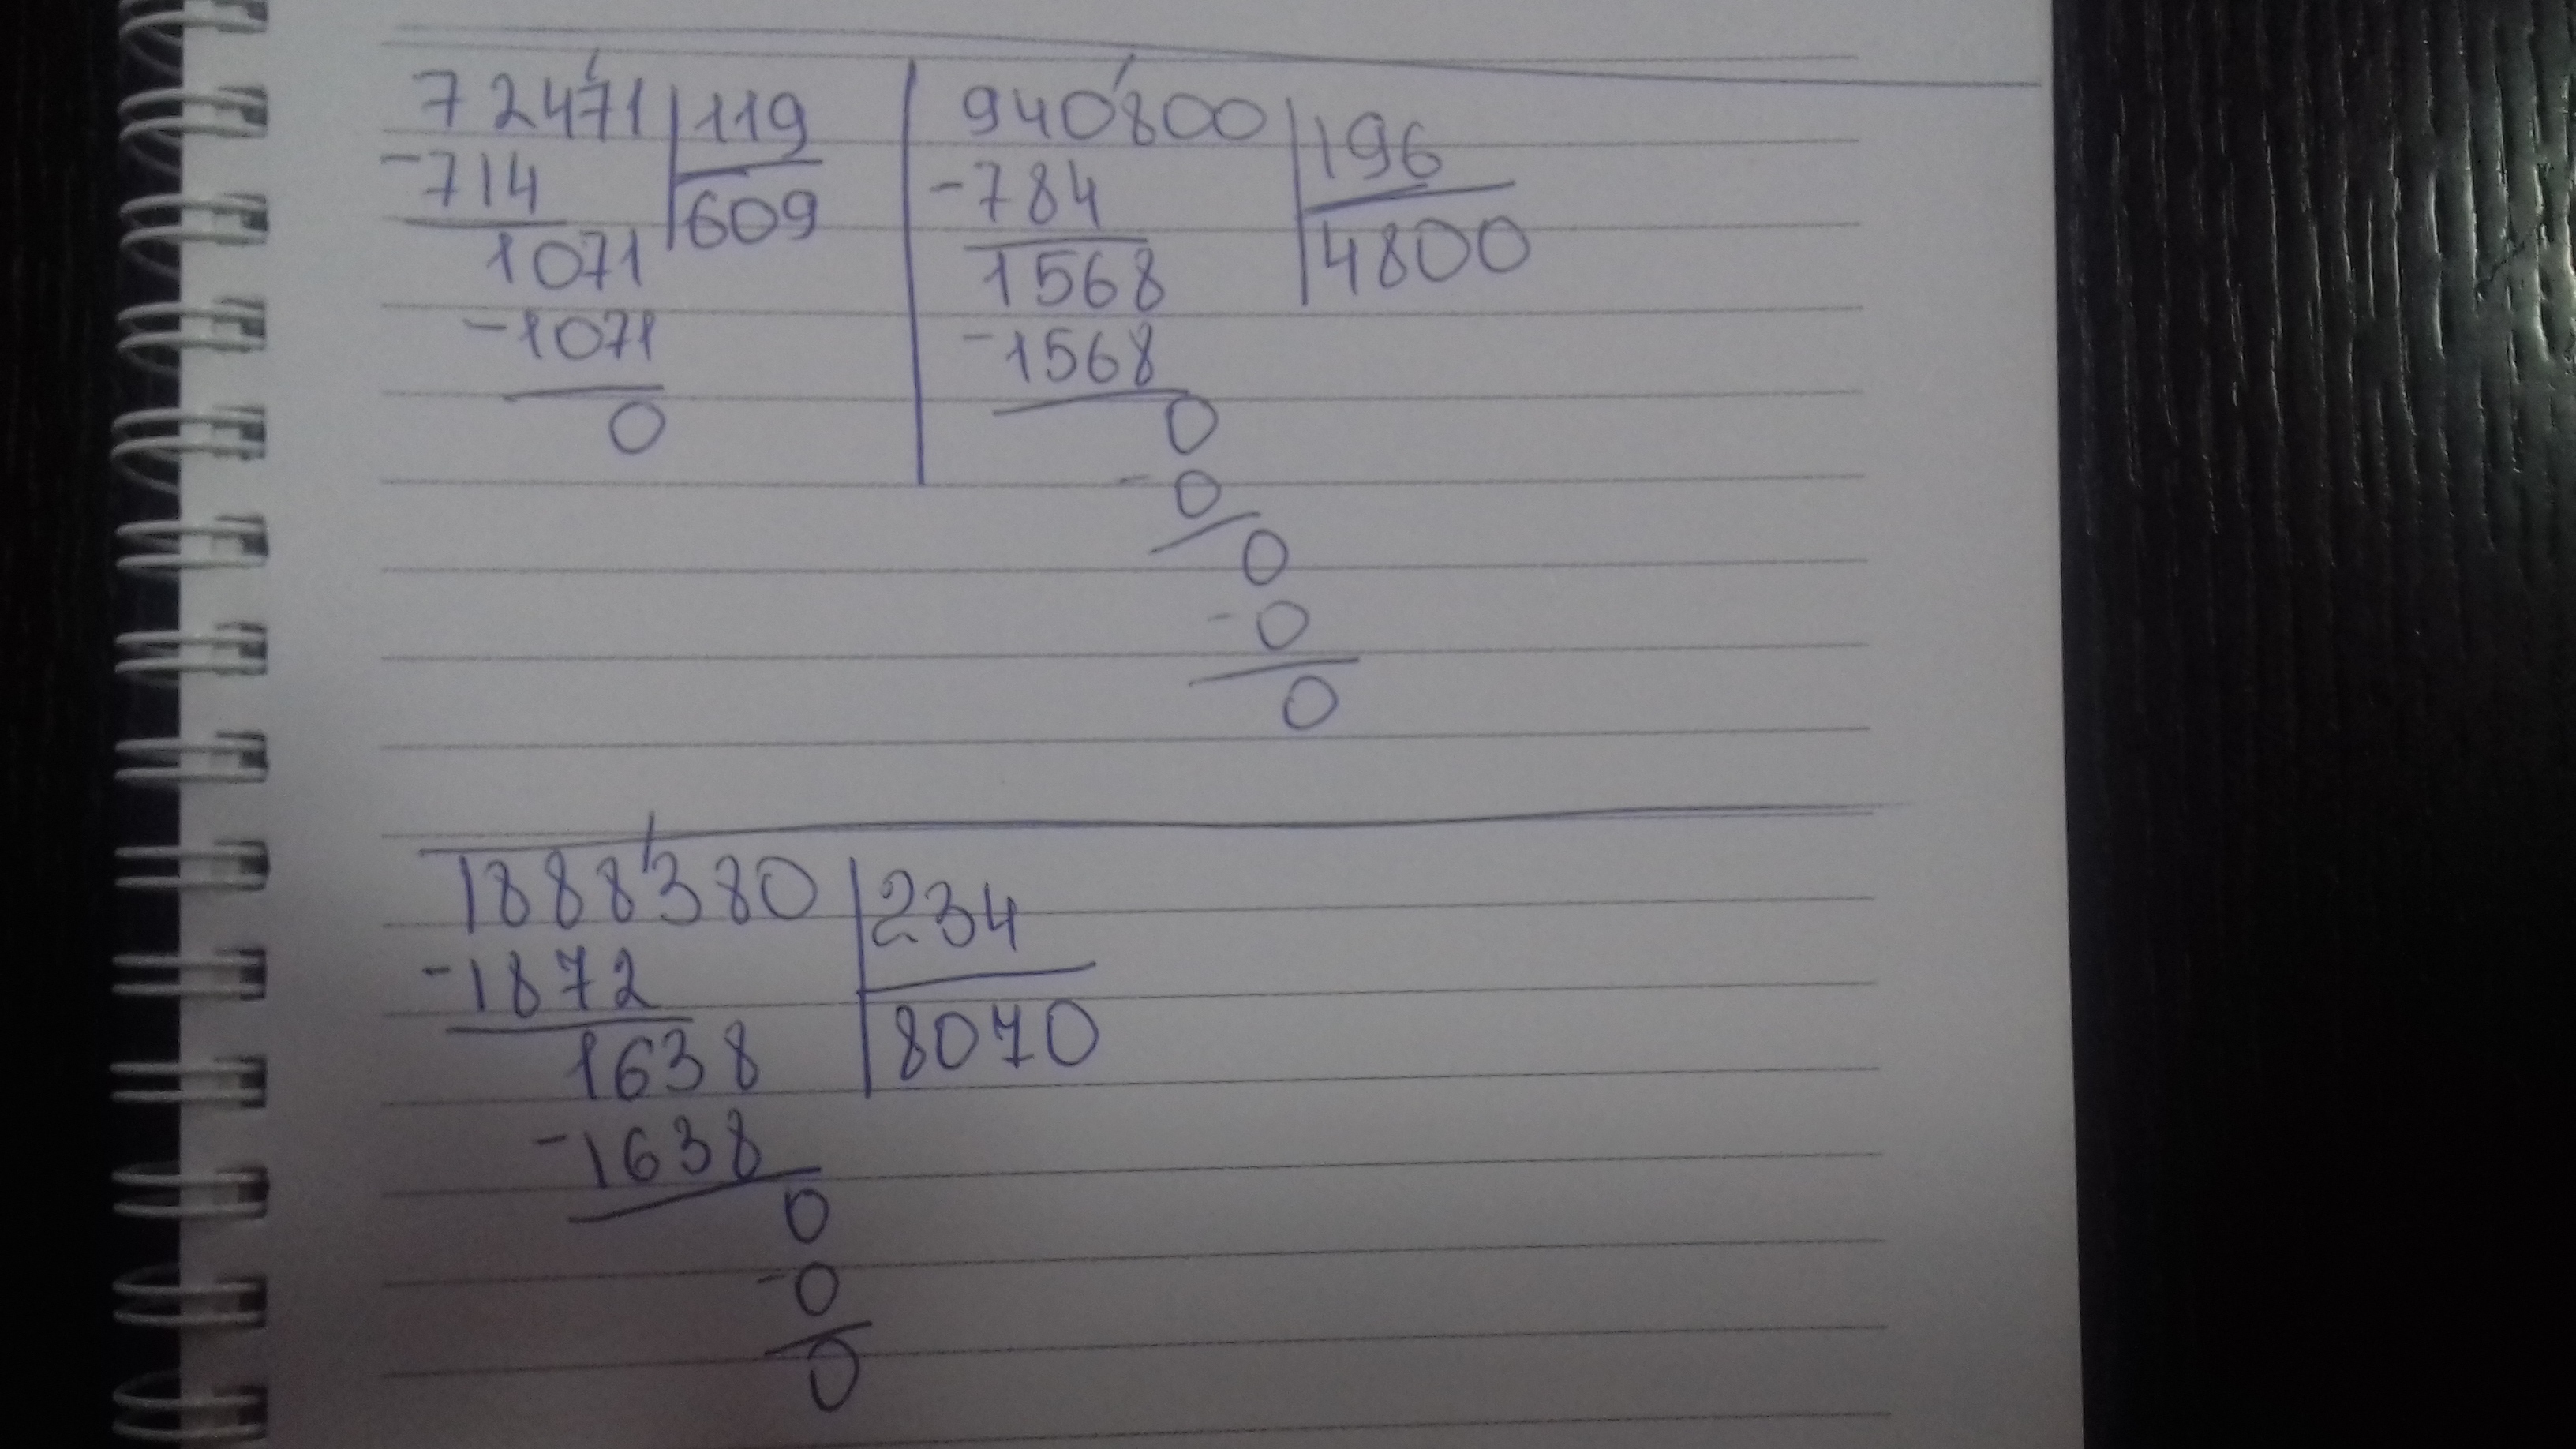 72471 119
-714 609
1071
-1071
0
940800 196
-784 4800
1568
-1568
0
-0
0
-0
0
1888380 234
-1872 8070
1638
-1638
0
-0
0